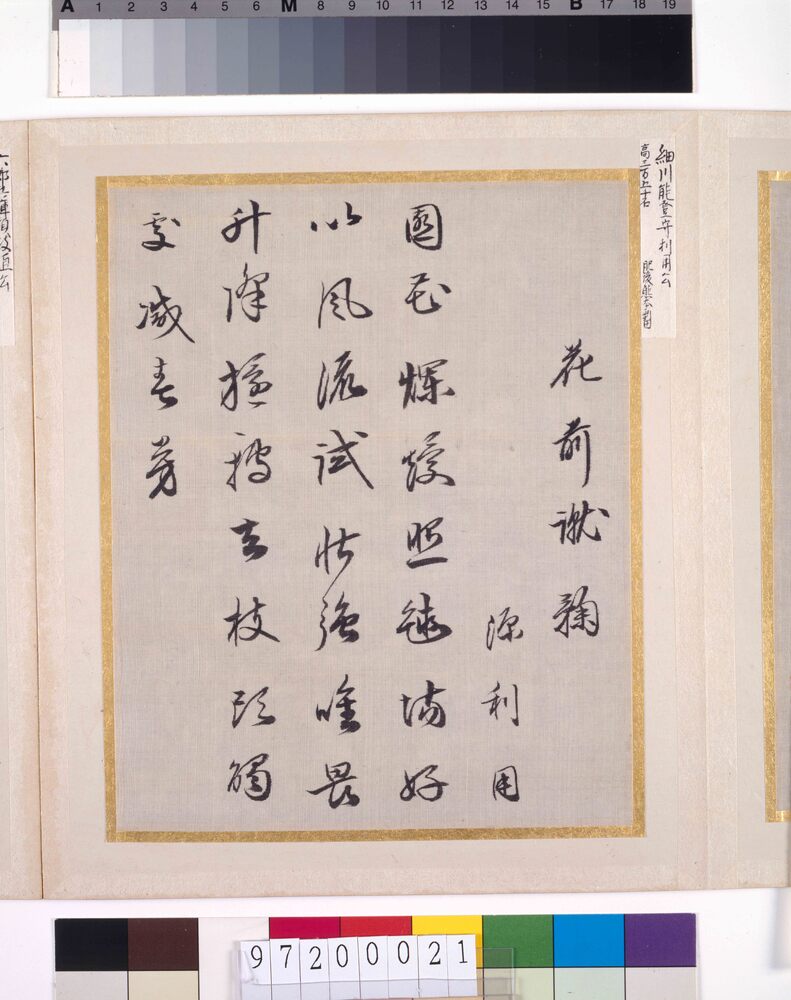 A 1 2 3 4 5 6 M 8 9 10 11 12 13 14 15 B 17 18 19
細川能登守利用公
高三万五千石 肥後熊本新田
花前蹴鞠
源利用
園花爛熳照毬場好
以風流試壮強唯畏
升降去枝頭觸
處減春芳
97200021